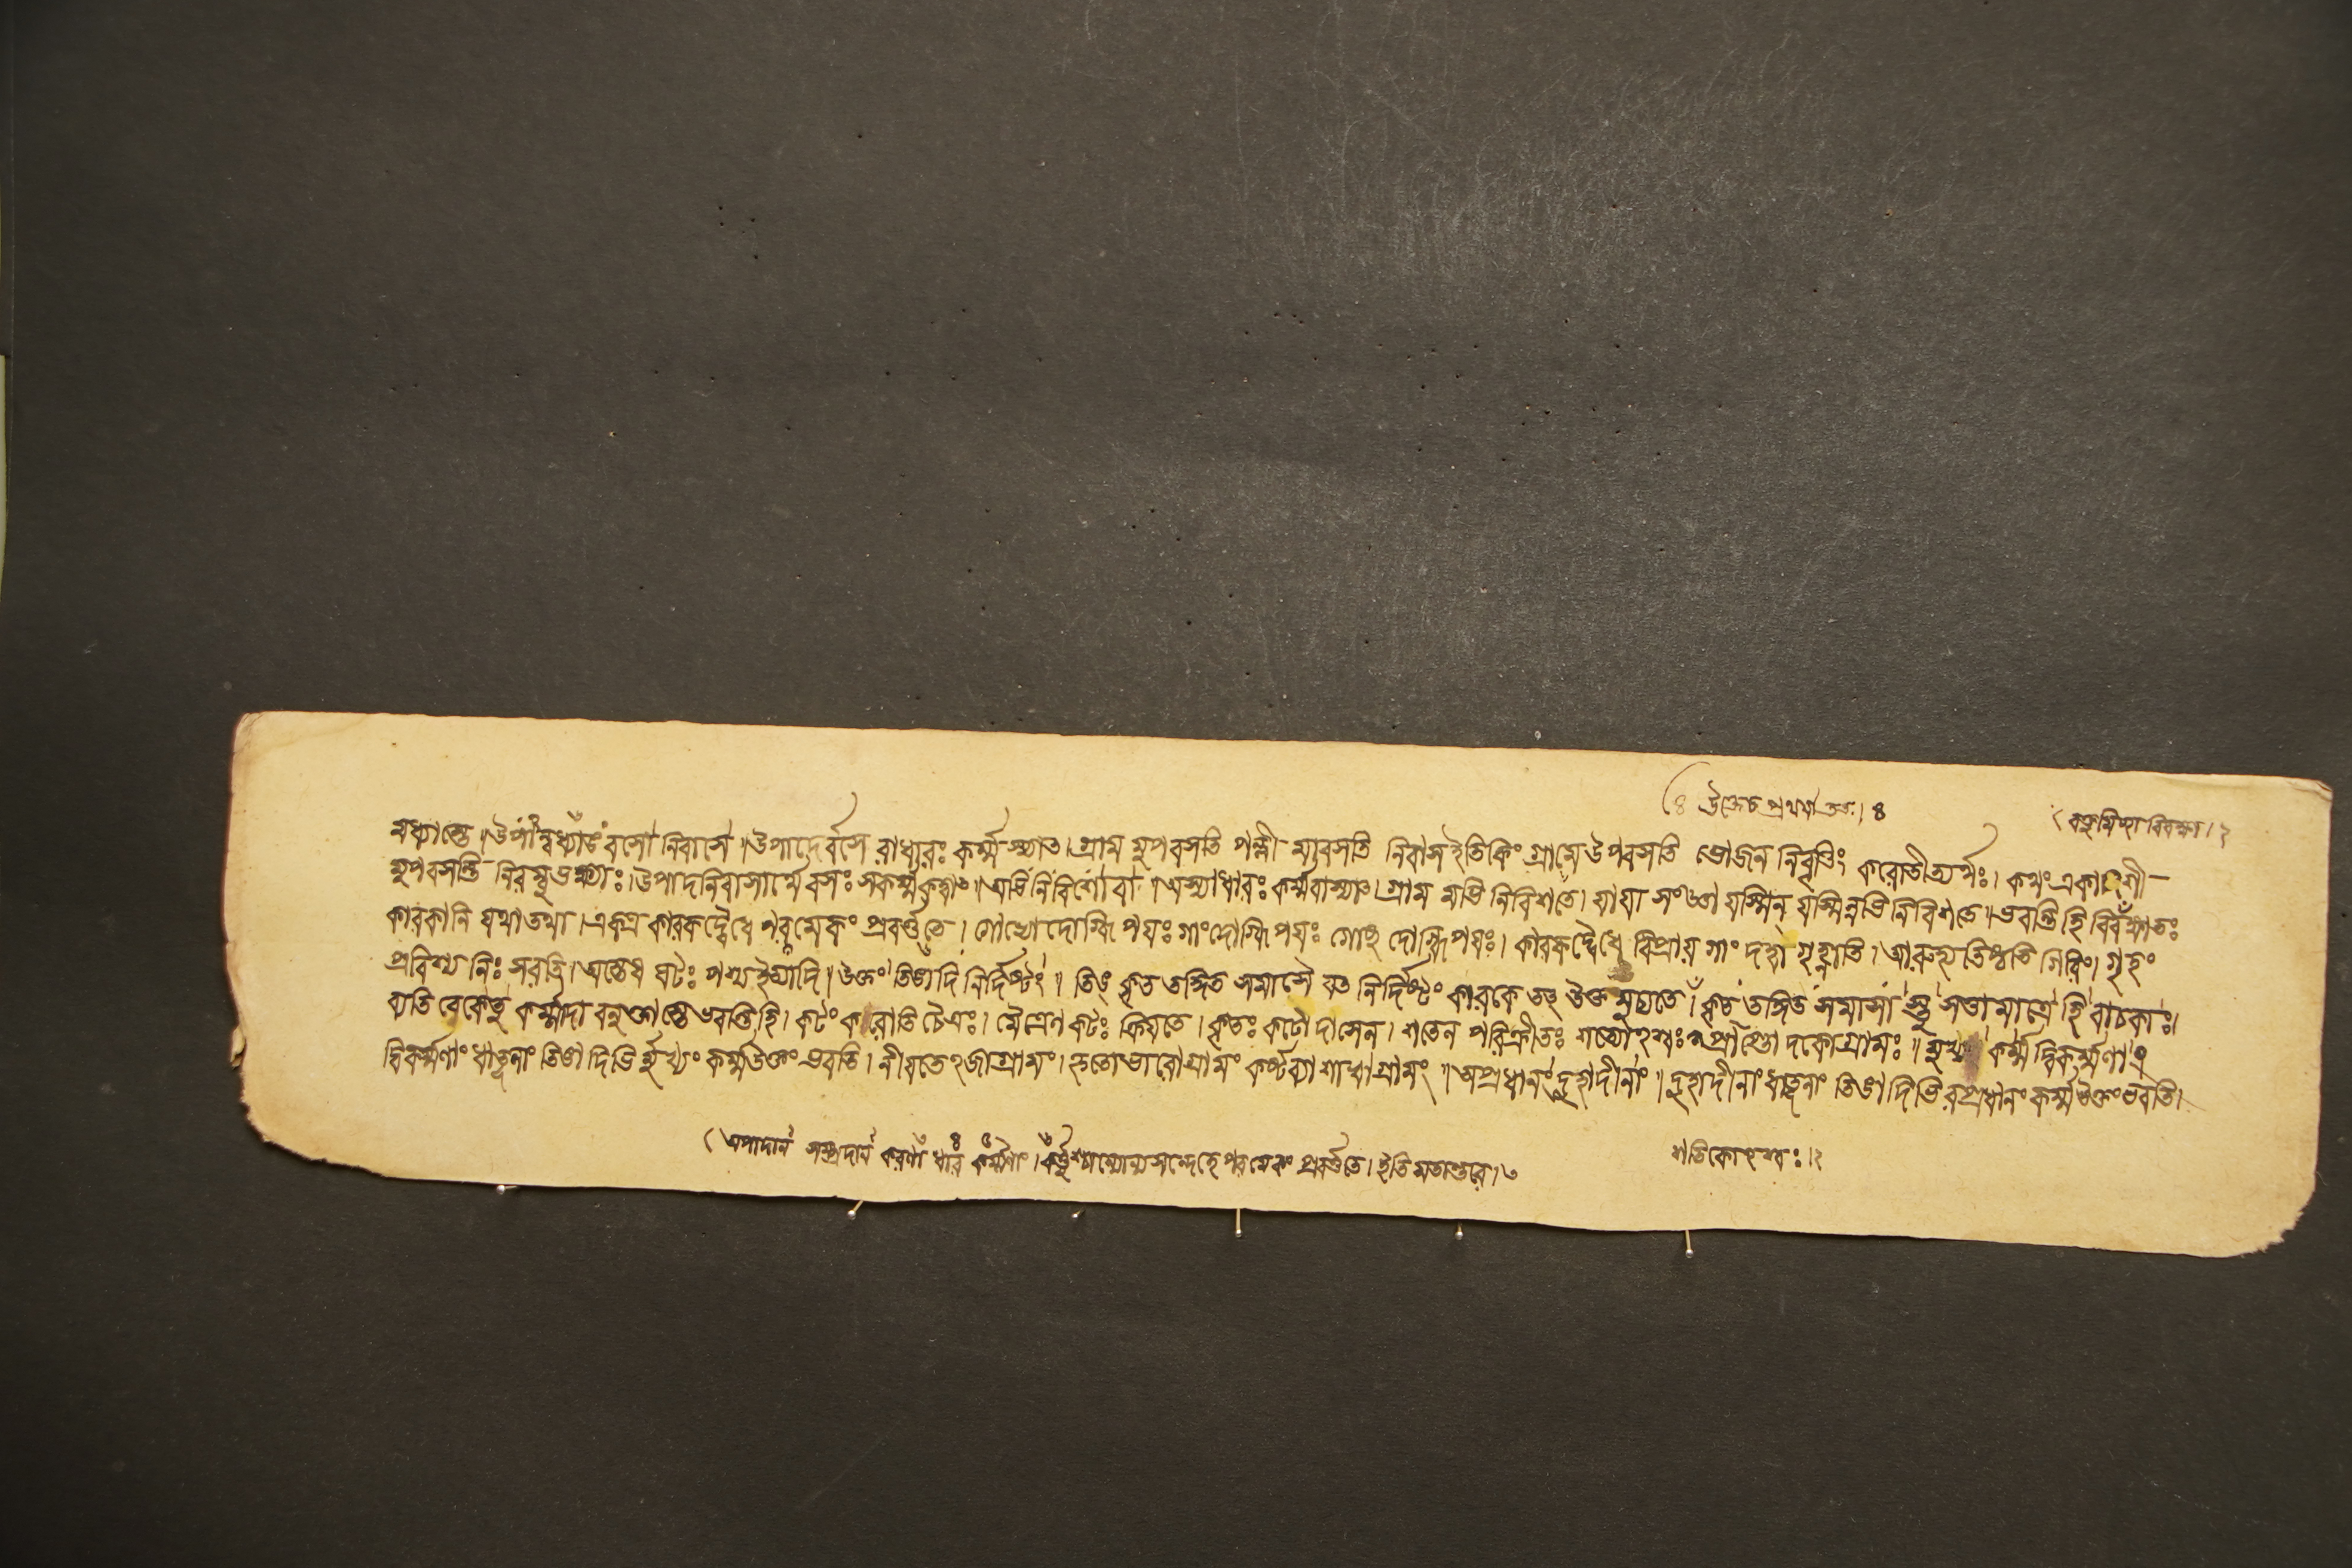 উক্তেচ প্রথমা ততঃ। ৪
বক্তুমিচ্ছা বিবক্ষা। ২
মধ্যাস্তে॥উপান্বধ্যাঙং বসো নিবাসে॥উপাদের্বসে রাধারঃ কর্ম্ম স্যাত। গ্রাম মুপবসতি পল্লী মাবসতি নিবাস ইতিকিং গ্রামে উপবসতি ভোজন নিবৃত্তিং করোতীত্যর্থঃ। কথং একাদশী
মুপবসন্তি নিরম্বুভক্ষ্যাঃ।উপাদনিবাসার্থে বসঃ সকর্ম্মকত্বাৎ॥অভি নিবিশো বা॥অস্যাধারঃ কর্ম্মবাস্যাৎ। গ্রাম মভি নিবিশতে। যা যা সংজ্ঞা যস্মিন্ যস্মিন্নভি নিবিশতে॥ভবন্তি হি বিবক্ষাতঃ
কারকানি যথা তথা।একত্র কারকদ্বৈধে পরমেকং প্রবর্ত্ততে। গোভ্যো দোগ্ধি পয়ঃ গাং দোগ্ধি পয়ঃ গোষু দোগ্ধি পয়ঃ। কারকদ্বৈধে বিপ্রায় গাং দত্ত্বা গৃহ্ণাতি। আরুহ্য তিষ্ঠতি গিরিং। গৃহং
প্রবিশ্য নিঃ সরতি। অস্তেষ ঘটঃ পশ্য ইত্যাদি॥উক্তং তিঙাদি নির্দিষ্টং॥ তিঙ্ কৃত তদ্ধিত সমাসৈ র্যত নির্দিষ্টং কারকে তৎ উক্ত মুচ্যতে। কৃত তদ্ধিত সমাসা স্তু সত্তা মাত্রে হি বাচকাঃ।
ব্যতি রেকেতু কর্ম্মাদা বনুক্তা স্তে ভবন্তি হি। কটং করোতি চৈত্রঃ। মৈত্রেণ কটঃ ক্রিয়তে। কৃতঃ কটো দাসেন। শতেন পরিক্রীতঃ শত্যোঽশ্বঃ প্রাপ্তো দকো গ্রামঃ॥ মুখ্যং কর্ম্ম দ্বিকর্ম্মণাং॥
দ্বিকর্ম্মণাং ধাতূনাং তিঙা দিভি র্মুখ্যং কর্ম্ম উক্তং ভবতি। নীয়তে ঽজা গ্রামং। হৃতো ভারো গ্রামং কর্ষ্টব্যা শাখা গ্রামং॥অপ্রধানং দুহাদীনাং॥ দুহাদীনাং ধাতূনাং তিঙা দিভি রপ্রধানং কর্ম্ম উক্তং ভবতি।
অপাদান সম্প্রদান করণা ধার কর্ম্মণাং। কর্ত্তুশ্চান্যোন্য সন্দেহে পর মেকং প্রবর্ত্ততে। ইতি মতান্তরে। ৩
শতিকোঽশ্বঃ। ২